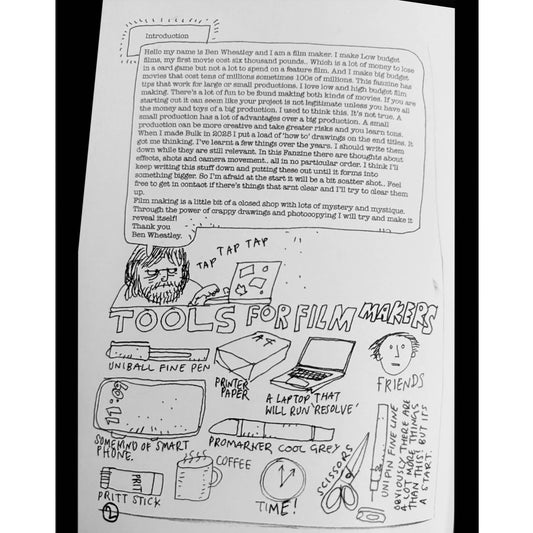 Introduction
Hello my name is Ben Wheatley and I am a film maker. I make Low budget
films, my first movie cost six thousand pounds.. Which is a lot of money to lose
in a card game but not a lot to spend on a feature film. And I make big budget
movies that cost tens of millions sometimes 100s of millions. This fanzine has
tips that work for large or small productions. I love low and high budget film
making. There's a lot of fun to be found making both kinds of movies. If you are
starting out it can seem like your project is not legitimate unless you have all
the money and toys of a big production. I used to think this. It's not true. A
small production has a lot of advantages over a big production. A small
production can be more creative and take greater risks and you learn tons.
When I made Bulk in 2025 I put a load of 'how to' drawings on the end titles. It
got me thinking. I've learnt a few things over the years. I should write them
down while they are still relevant. In this Fanzine there are thoughts about
effects, shots and camera movement.. all in no particular order. I think I'll
keep writing this stuff down and putting these out until it forms into
something bigger. So I'm afraid at the start it will be a bit scatter shot.. Feel
free to get in contact if there's things that arnt clear and I'll try to clear them
up.
Film making is a little bit of a closed shop with lots of mystery and mystique.
Through the power of crappy drawings and photocopying I will try and make it
reveal itself!
Thank you
Ben Wheatley.
TAP TAP TAP TAP
TOOLS FOR FILM MAKERS
UNIBALL FINE PEN
A4
PRINTER
PAPER
A LAPTOP THAT
WILL RUN 'RESOLVE'
FRIENDS
SOMEKIND OF SMART
PHONE.
PROMARKER COOL GREY
SCISSORS
UNIPIN FINE LINE
OBVIOUSLY THERE ARE
A LOT MORE THINGS
THAN THIS! BUT ITS
A START.
PRITT
PRITT STICK
COFFEE
TIME!
2